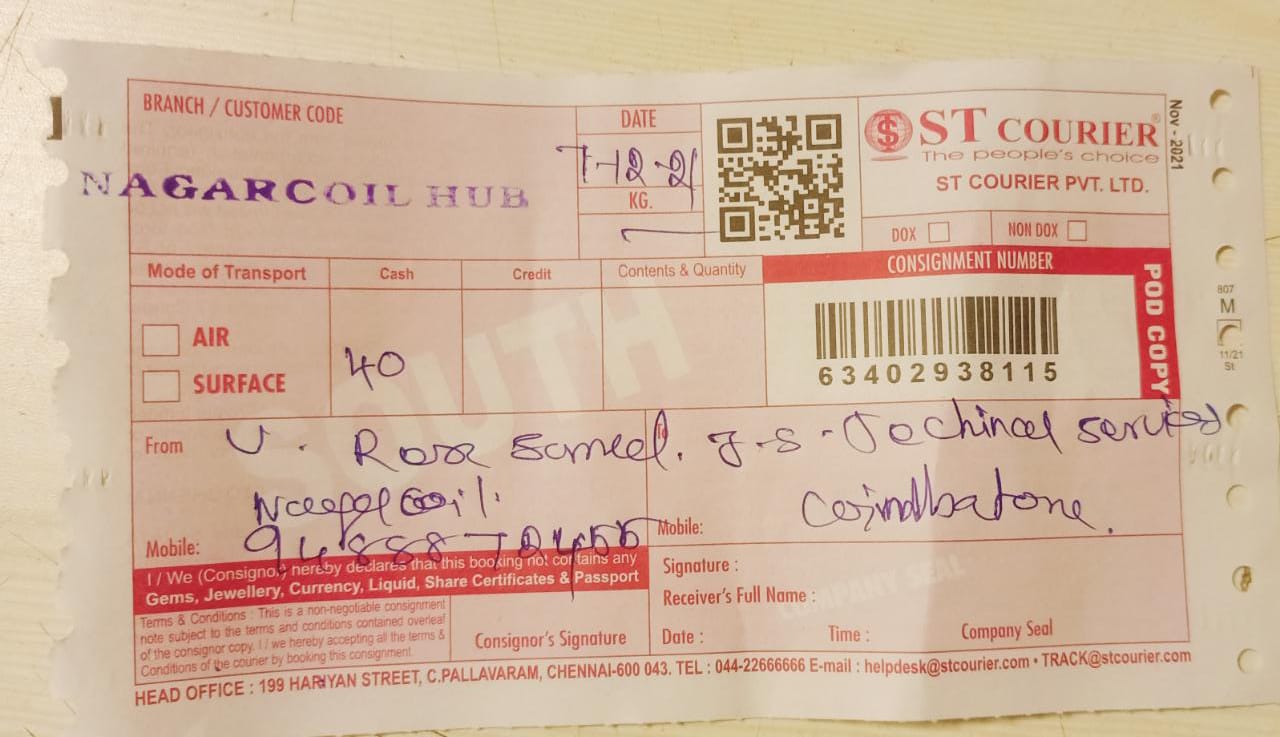 BRANCH / CUSTOMER CODE
NAGARCOIL HUB
DATE
7-12-21
KG.
ST COURIER®
The people's choice
ST COURIER PVT. LTD.
Nov - 2021
DOX
NON DOX
Mode of Transport
Cash
Credit
Contents & Quantity
CONSIGNMENT NUMBER
AIR
SURFACE
40
SOUTH
63402938115
POD COPY
807
M
11/21
St
From
To
Mobile:
Mobile:
I / We (Consignor) hereby declares that this booking not contains any
Gems, Jewellery, Currency, Liquid, Share Certificates & Passport
Terms & Conditions : This is a non-negotiable consignment
note subject to the terms and conditions contained overleaf
of the consignor copy. I / we hereby accepting all the terms &
Conditions of the courier by booking this consignment.
Consignor's Signature
Signature :
Receiver's Full Name :
COMPANY SEAL
Date :
Time :
Company Seal
HEAD OFFICE : 199 HARIYAN STREET, C.PALLAVARAM, CHENNAI-600 043. TEL : 044-22666666 E-mail : helpdesk@stcourier.com • TRACK@stcourier.com